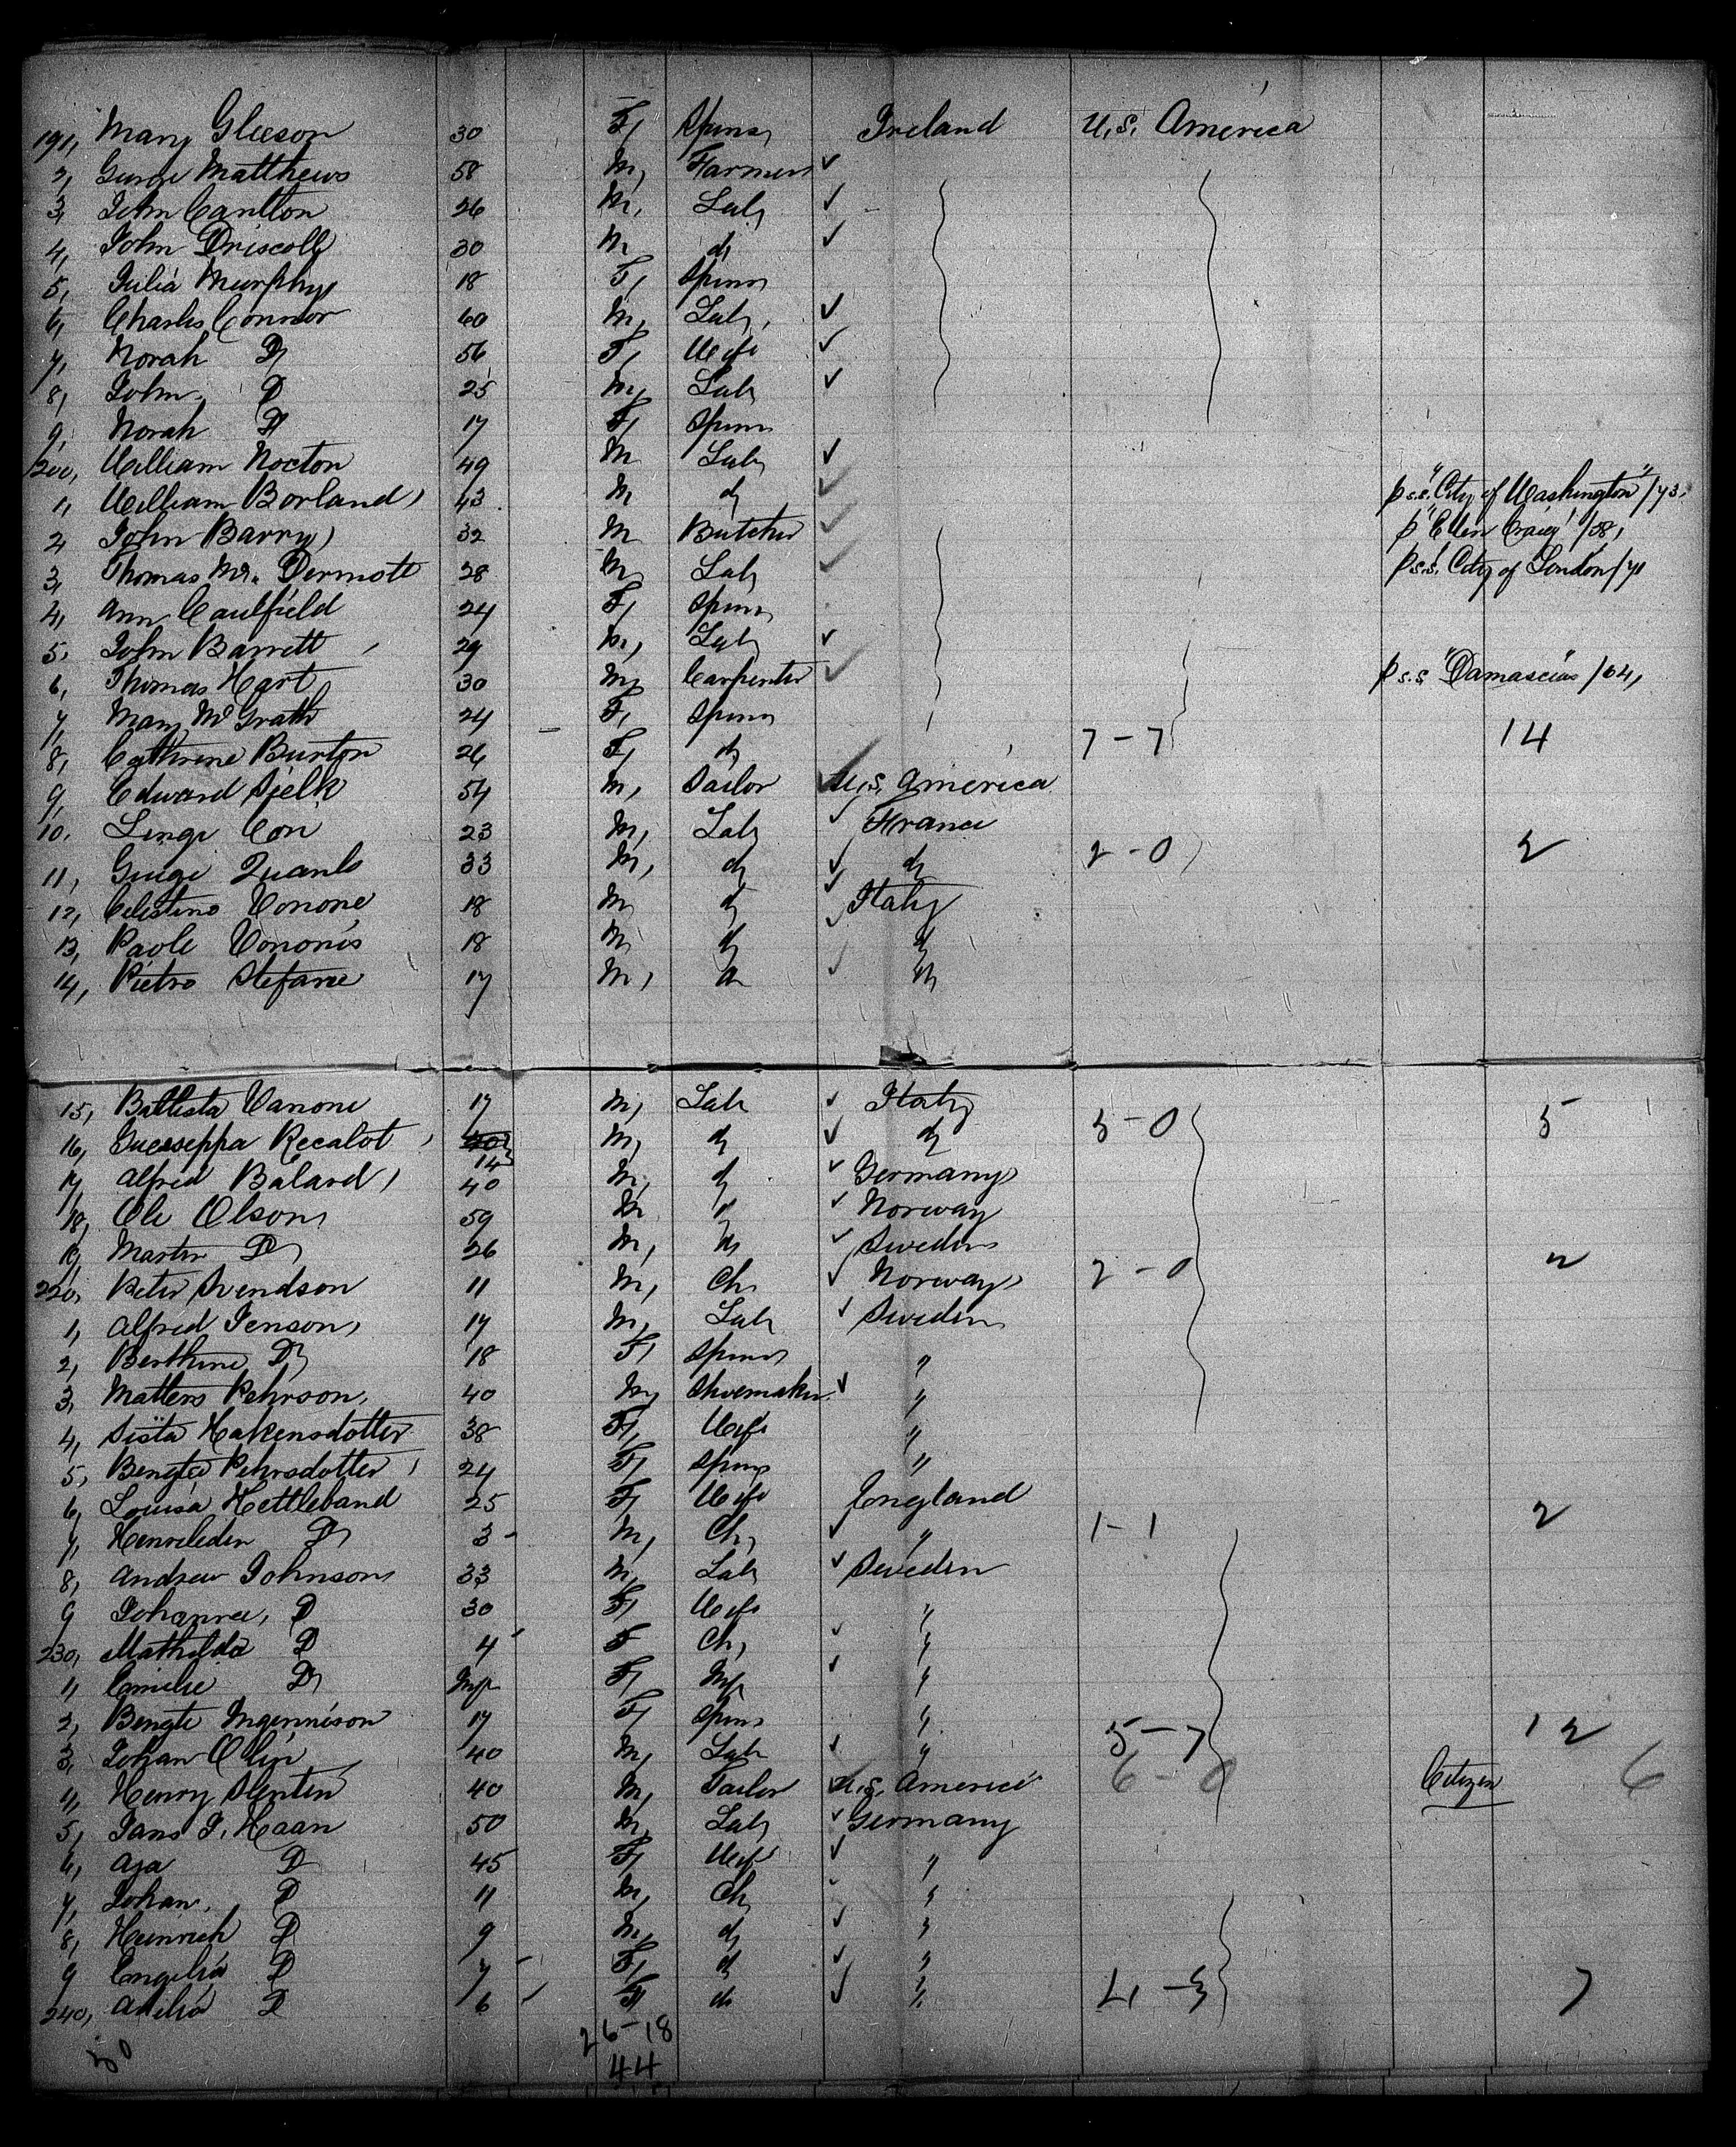 191, Mary Gleeson 30 F, Spins, Ireland U.S. America
2, George Matthews 58 M, Farmer ✓
3, John Cantlon 26 M, Lab, ✓
4, John Driscoll 30 M do ✓
5, Julia Murphy 18 F, Spins
6, Charles Connor 60 M, Lab, ✓
7, Norah Do 56 F, Wife ✓
8, John, Do 25 M, Lab, ✓
9, Norah Do 17 F, Spins
200, William Nocton 49 M Lab, ✓
1, William Borland, 43 M do ✓ p s.s. "City of Washington"/73.
2 John Barry, 32 M Butcher ✓ p "Ellen Craig" /58,
3, Thomas Mc. Dermott 28 M, Lab, ✓ p s.s. City of London/71
4, Ann Caulfield 24 F, Spins,
5, John Barrett 29 M, Lab, ✓
6, Thomas Hart 30 M, Carpenter ✓ p s.s. "Damascus" /64,
7, Mary McGrath 24 F, Spins
8, Cathrine Burton 26 F, do 7-7 14
9, Edward Sielk 54 M, Sailor ✓ U.S. America
10, Con 23 M, Lab, ✓ France
11, 33 M, do ✓ do 2-0 2
12, Celestino Vonone 18 M, do ✓ Italy
13, Paole Vononis 18 M do ✓ do
14, Pietro Stefane 17 M, do ✓ do
15, Battista Vanone 17 M, Lab ✓ Italy 5-0 5
16, Guesseppa Recalot, 14 M, do ✓ do
17, Alfred Balard, 40 M, do ✓ Germany
18, Ole Olson, 59 M do ✓ Norway
19, Martin Do 26 M, do ✓ Sweden
220, Peter Svendson 11 M, Ch ✓ Norway 2-0 2
1, Alfred Jenson, 17 M, Lab ✓ Sweden
2, Berthine Do 18 F, Spins "
3, Mattens Pehrson, 40 M, Shoemaker ✓ "
4, Sista Hakensdotter 38 F, Wife "
5, Bengta Pehrsdotter, 24 F, Spins "
6, Louisa Kettleband 25 F, Wife England 2
7, Do 3 M, Ch, ✓ " 1-1
8, Andrew Johnson 33 M, Lab ✓ Sweden
9 Johanna, Do 30 F, Wife "
230, Mathilda Do 4 F Ch, ✓ "
1, Emelie Do Inf F, Inf ✓ "
2, Bengte 17 F, Spins " 5-7 12
3, Johan Olin 40 M, Lab ✓ " 6-0 6
4, Henry Stenten 40 M, Tailor ✓ U.S. America Citizen
5, Jans J. Haan 50 M, Lab, ✓ Germany
6, Aja Do 45 F, Wife ✓ "
7, Johan, Do 11 M, Ch, ✓ "
8, Heinrich Do 9 M, do ✓ "
9 Engelia Do 7 F, do ✓ "
240, Do 6 F do ✓ " 4-3 7
50 26-18
44